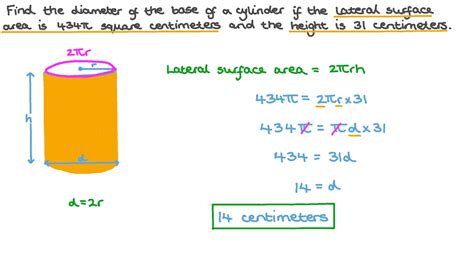 Find the diameter of the base of a cylinder if the lateral surface
area is 434π square centimeters and the height is 31 centimeters.
2πr
r
h
d
d=2r
Lateral surface area = 2πrh
434π = 2πr×31
434π = πd×31
434 = 31d
14 = d
14 centimeters